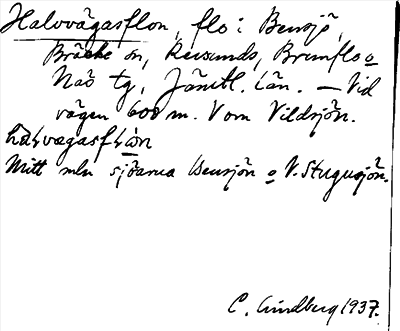 Halvvägasflon, flo i Bensjö,
Bräcke sn, Revsunds, Brunflo o
Näs tg, Jämtl. län. — Vid
vägen 600 m. V om Vildsjön.
Mitt mln sjöarna Bensjön o V. Stugusjön.
C. Lindberg 1937.